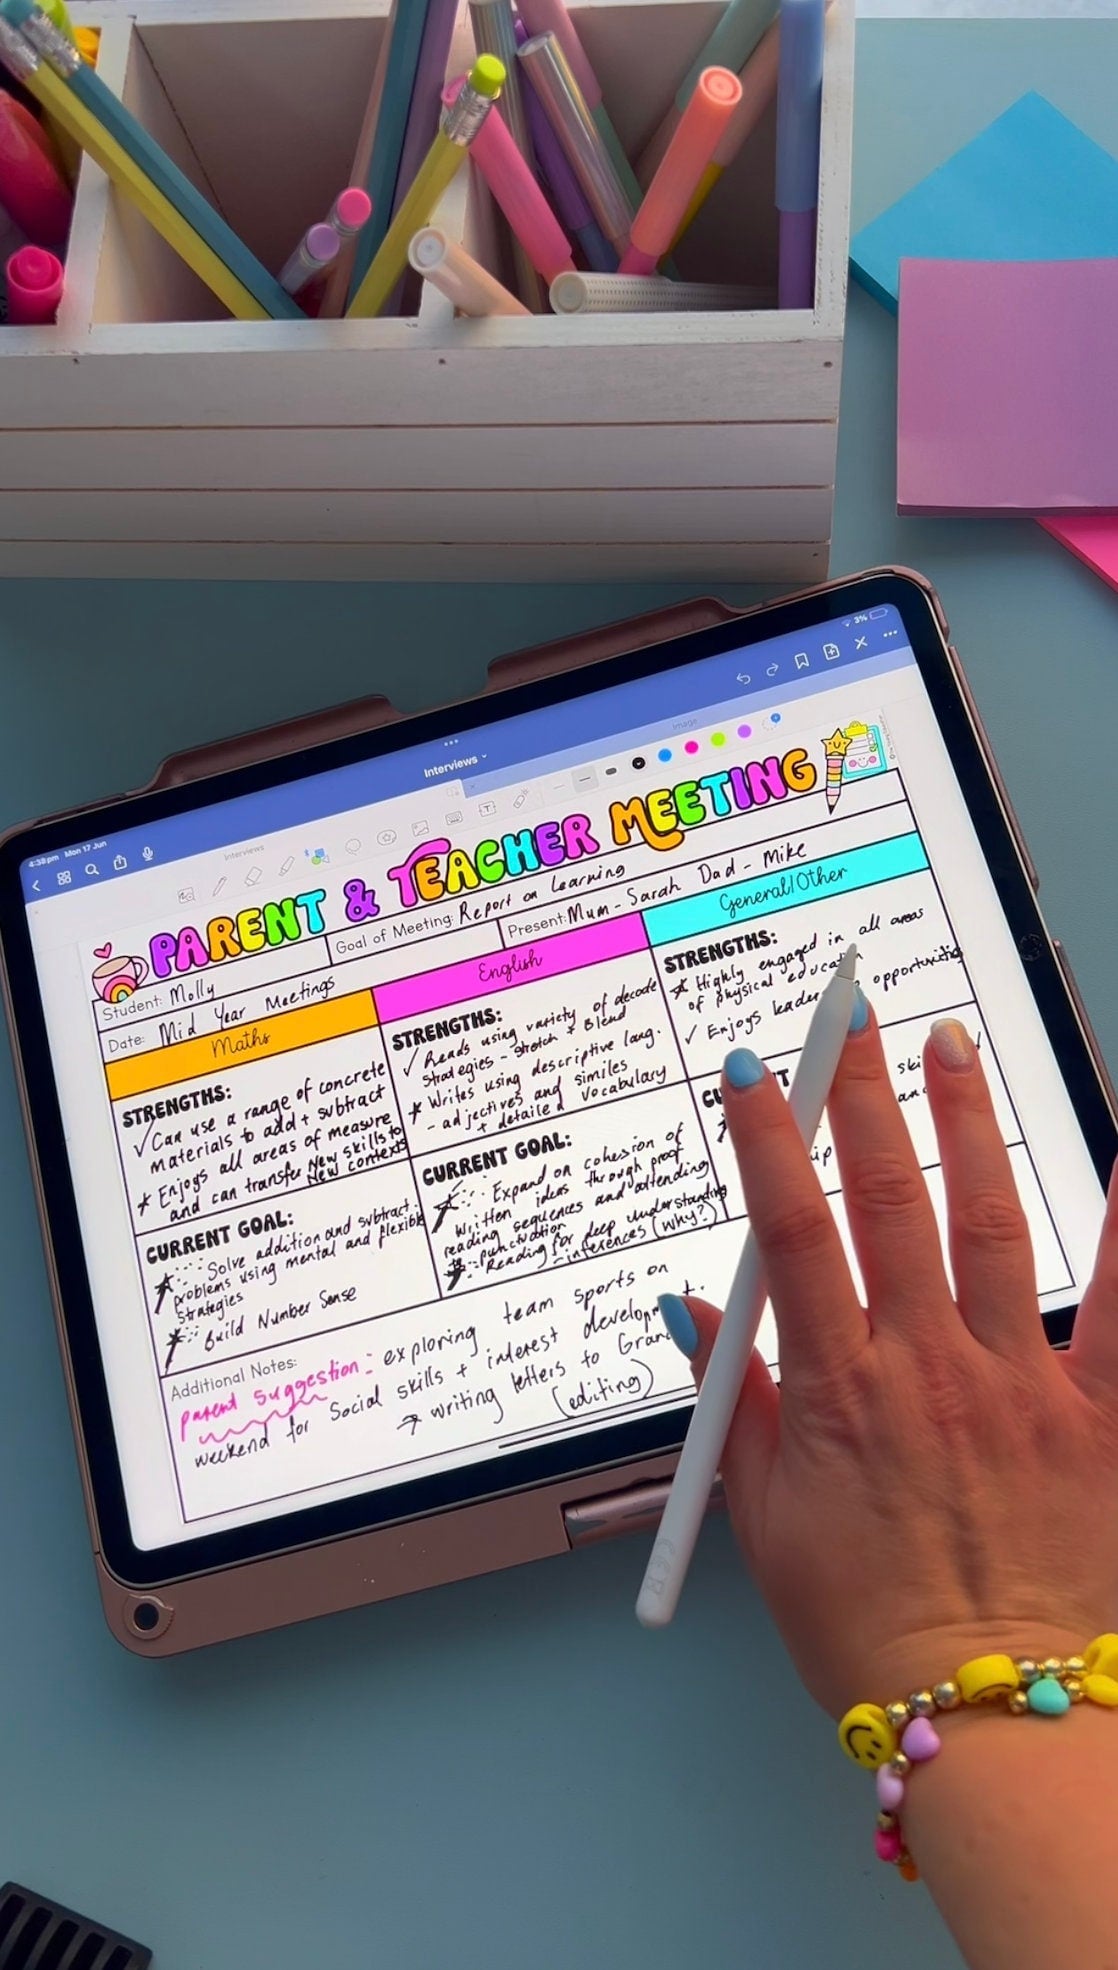 3%
4:38pm Mon 17 Jun
Interviews
Interviews
Image
PARENT & TEACHER MEETING
Student: Molly
Goal of Meeting: Report on Learning
Date: Mid Year Meetings
Present: Mum - Sarah Dad - Mike
Maths
STRENGTHS:
✓ Can use a range of concrete
materials to add + subtract
* Enjoys all areas of measure
and can transfer new skills to
new contexts
CURRENT GOAL:
Solve addition and subtract.
problems using mental and flexible
strategies
Build Number Sense
English
STRENGTHS:
✓ Reads using variety of decode
strategies - stretch + Blend
* Writes using descriptive lang.
- adjectives and similes
+ detailed vocabulary
CURRENT GOAL:
Expand on cohesion of
written ideas through proof
reading sequences and attending
punctuation
Reading for deep understanding
- inferences (why?)
General/Other
STRENGTHS:
* Highly engaged in all areas
of physical education
✓ Enjoys opportunities
Additional Notes:
parent suggestion: exploring team sports on
weekend for Social skills + interest development.
→ writing letters to
(editing)